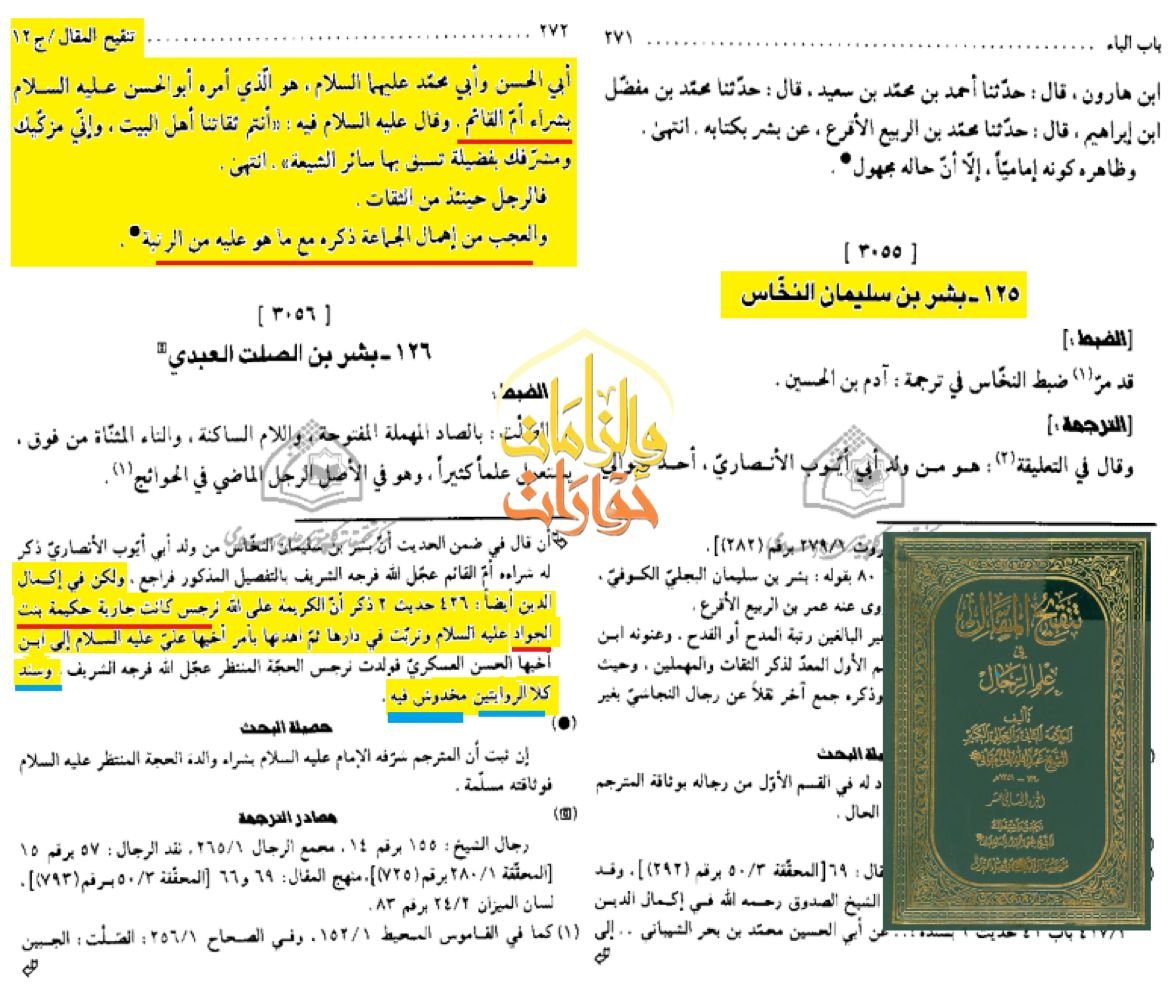 باب الباء ........ ٢٧١
ابن هارون ، قال : حدّثنا أحمد بن محمّد بن سعيد ، قال : حدّثنا محمّد بن مفضّل
ابن إبراهيم ، قال : حدّثنا محمّد بن الربيع الأقرع ، عن بشر بكتابه . انتهىٰ .
وظاهره كونه إماميّاً ، إلّا أنّ حاله مجهول● .
[ ٣٠٥٥ ]
١٢٥ ـ بشر بن سليمان النخّاس
[الضبط :]
قد مرّ(١) ضبط النخّاس في ترجمة : آدم بن الحسين .
[الترجمة :]
وقال في التعليقة(٢) : هو من ولد أبي أيّوب الأنصاريّ ، أحد موالي
بروت ٢٧٩/١ برقم (٢٨٢)] .
٨٠ بقوله : بشر بن سليمان البجليّ الكوفيّ ،
وى عنه عمر بن الربيع الأقرع .
غير البالغين رتبة المدح أو القدح . وعنونه ابن
م الأول المعدّ لذكر الثقات والمهملين ، وحيث
وذكره جمع آخر نقلاً عن رجال النجاشيّ بغير
لة البحث
د له في القسم الأوّل من رجاله بوثاقة المترجم
الحال .
قال : ٦٩ [المحقّقة ٥٠/٣ برقم (٢٩٢)] . وقد
الشيخ الصدوق رحمه الله في إكمال الدين
٤١٧/١ باب ٤١ حديث ١ بسنده : . . عن أبي الحسين محمّد بن بحر الشيباني .. إلى
٢٧٢ ........ تنقيح المقال / ج ١٢
أبي الحسن وأبي محمّد عليهما السلام ، هو الّذي أمره أبوالحسن عليه السلام
بشراء أمّ القائم . وقال عليه السلام فيه : «أنتم ثقاتنا أهل البيت ، وإنّي مزكّيك
ومشرّفك بفضيلة تسبق بها سائر الشيعة» . انتهىٰ .
فالرجل حينئذ من الثقات .
والعجب من إهمال الجماعة ذكره مع ما هو عليه من الرتبة● .
[ ٣٠٥٦ ]
١٢٦ ـ بشر بن الصلت العبدي
الضبط :
الصلْت : بالصاد المهملة المفتوحة ، واللام الساكنة ، والتاء المثنّاة من فوق ،
يستعمل علماً كثيراً ، وهو في الأصل الرجل الماضي في الحوائج(١) .
أن قال في ضمن الحديث أنّ بشر بن سليمان النخّاس من ولد أبي أيّوب الأنصاريّ ذكر
له شراءه أمّ القائم عجّل الله فرجه الشريف بالتفصيل المذكور فراجع . ولكن في إكمال
الدين أيضاً : ٤٢٦ حديث ٢ ذكر أنّ الكريمة على الله نرجس كانت جارية حكيمة بنت
الجواد عليه السلام وتربّت في دارها ثمّ اهدتها بأمر أخيها عليّ عليه السلام إلى ابن
أخيها الحسن العسكريّ فولدت نرجس الحجّة المنتظر عجّل الله فرجه الشريف . وسند
كلا الروايتين مخدوش فيه .
(●) حصيلة البحث
إن ثبت أن المترجم شرّفه الإمام عليه السلام بشراء والدة الحجة المنتظر عليه السلام
فوثاقته مسلّمة .
مصادر الترجمة
رجال الشيخ : ١٥٥ برقم ١٤ ، مجمع الرجال ٢٦٥/١ ، نقد الرجال : ٥٧ برقم ١٥
[المحقّقة ٢٨٠/١ برقم (٧٢٥)] ، منهج المقال : ٦٩ و ٦٦ [المحقّقة ٥٠/٣ برقم (٧٩٣)] ،
لسان الميزان ٢٤/٢ برقم ٨٣ .
(١) كما في القاموس المحيط ١٥٢/١ ، وفي الصحاح ٢٥٦/١ : الصّلْت : الجبين
والزامات
حوارات
تنقيح المقال
في
علم الرجال
تأليف